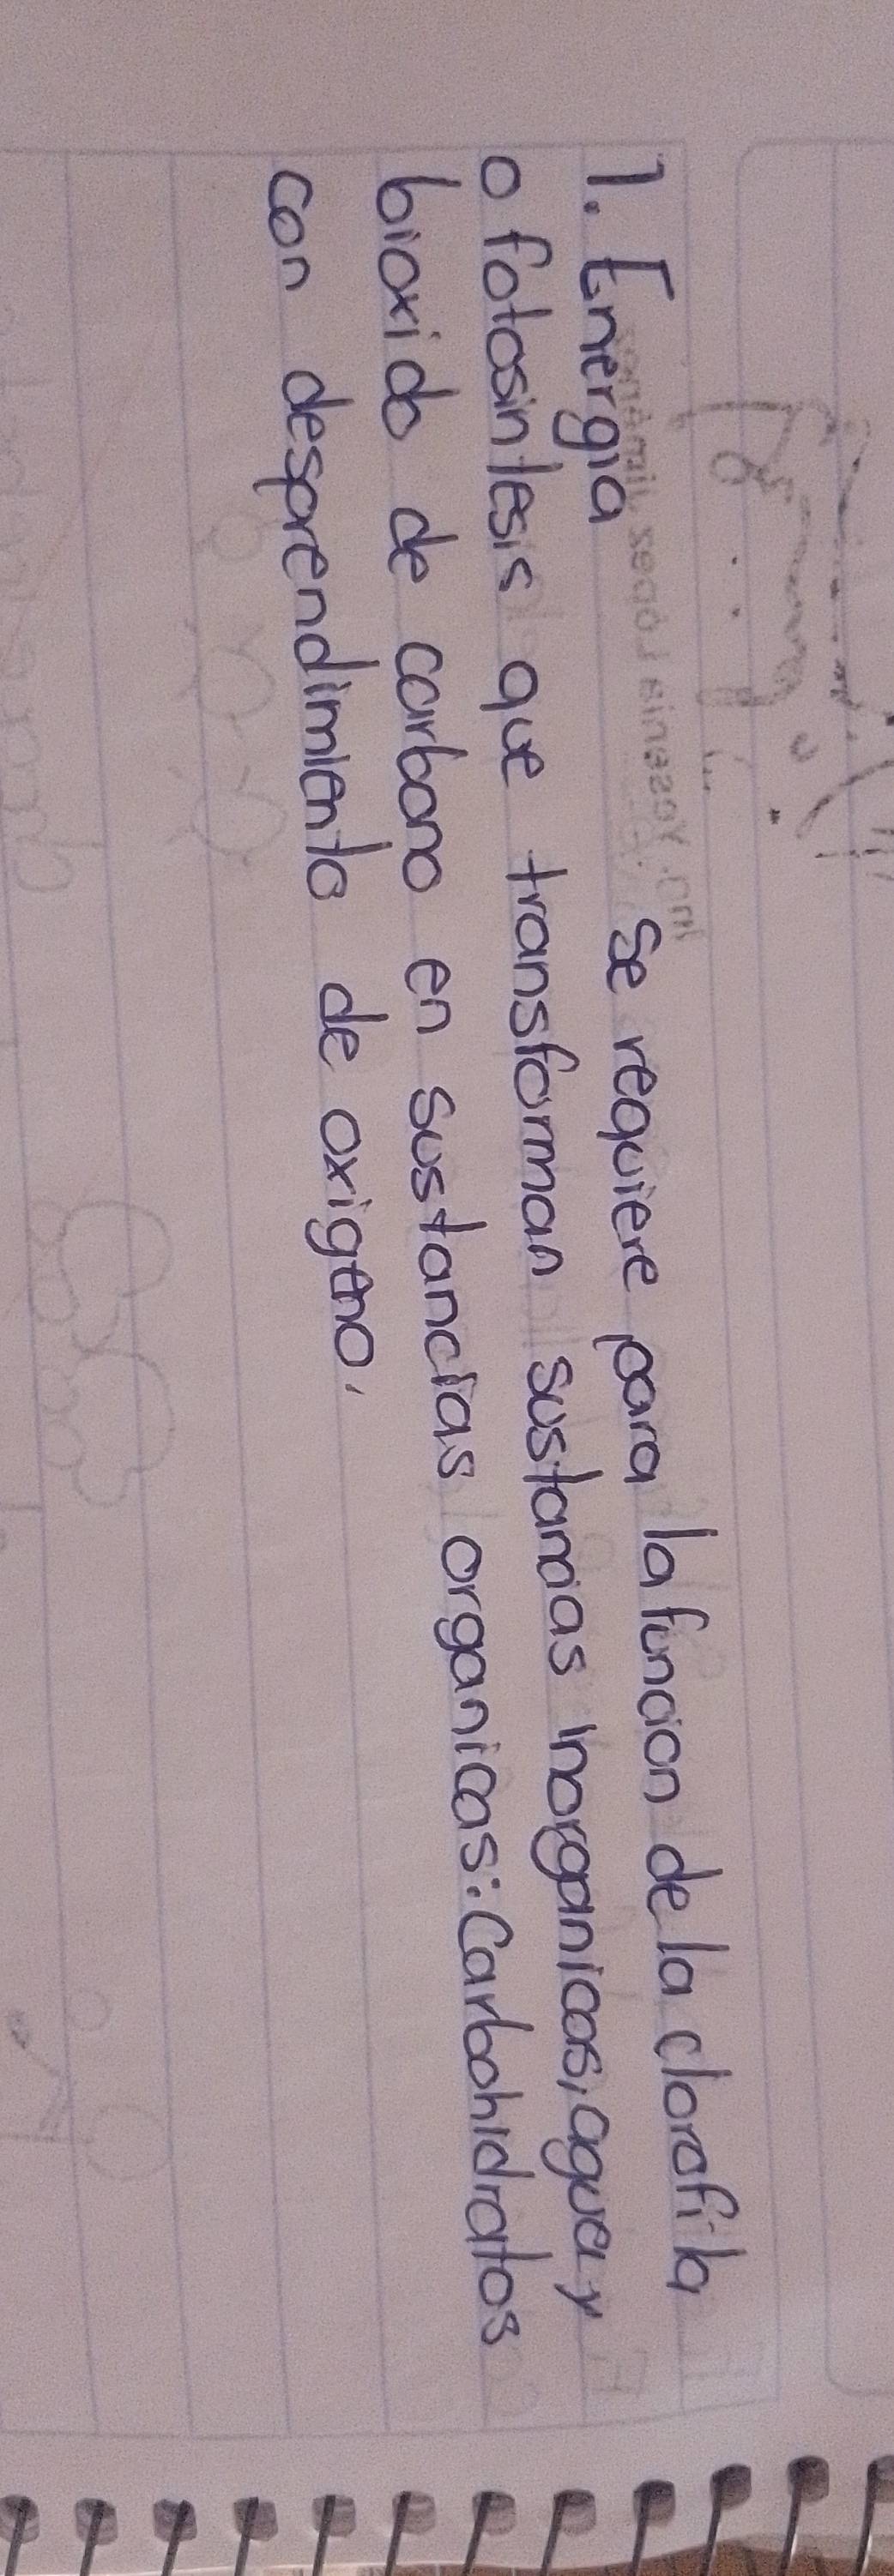 1. Energia se requiere para la funcion de la clorofila
o fotosintesis que transforman sustancias inorganicas, agua y
bioxido de carbono en sustancias organicas: Carbohidratos
con desprendimiento de oxigeno.